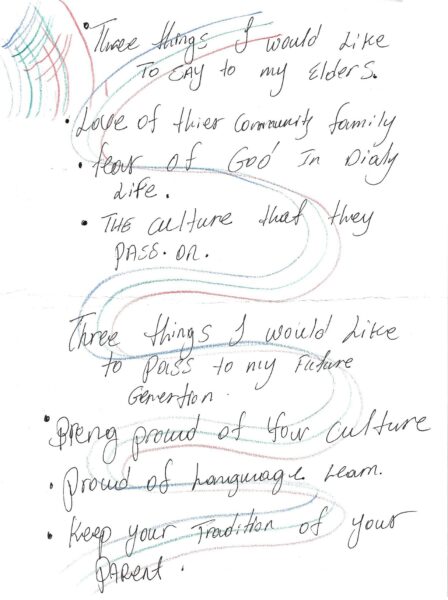 • Three things I would Like
To SAY to my Elders.
• Love of thier Community family
• fear of God In Dialy
Life.
• THE culture that they
PASS. on.
Three things I would Like
to Pass to my Future
Genertion.
• Breng proud of Your culture
• Proud of Language Learn.
• Keep your Tradition of your
PARENT.